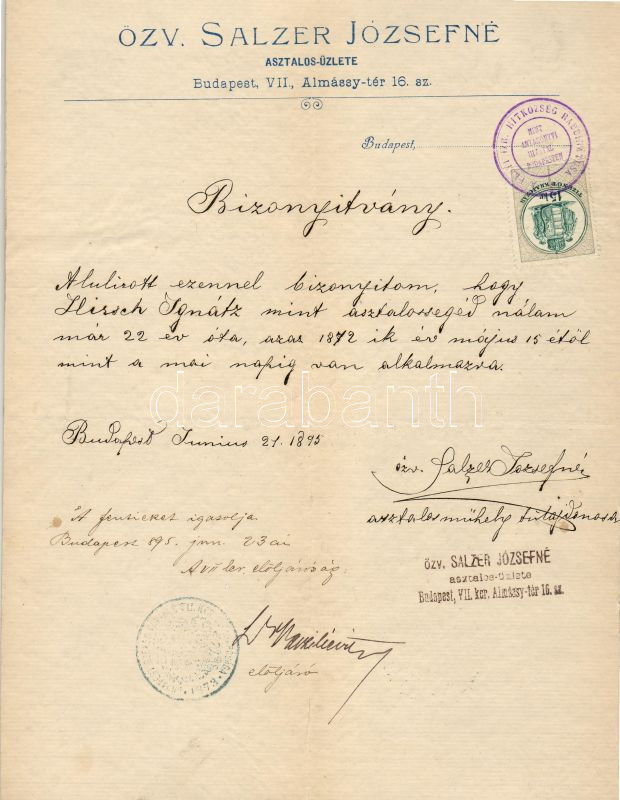 ÖZV. SALZER JÓZSEFNÉ
ASZTALOS-ÜZLETE
Budapest, VII., Almássy-tér 16. sz.
Budapest,
15 kr
Bizonyitvány.
Alulirott ezennel bizonyitom, hogy
Hirsch Ignátz mint asztalossegéd nálam
már 22 év óta, azaz 1872 ik év május 15 étöl
mint a mai napig van alkalmazva.
darabanth
Budapest Junius 21. 1895
özv. Salzer Jozsefné
asztalos műhely tulajdonosa
A fentieket igazolja
Budapest 895. jun. 23 án
A VII ker. elöljáróság:
ÖZV. SALZER JÓZSEFNÉ
asztalos-üzlete
Budapest, VII. ker. Almássy-tér 16. sz.
1873
elöljáró